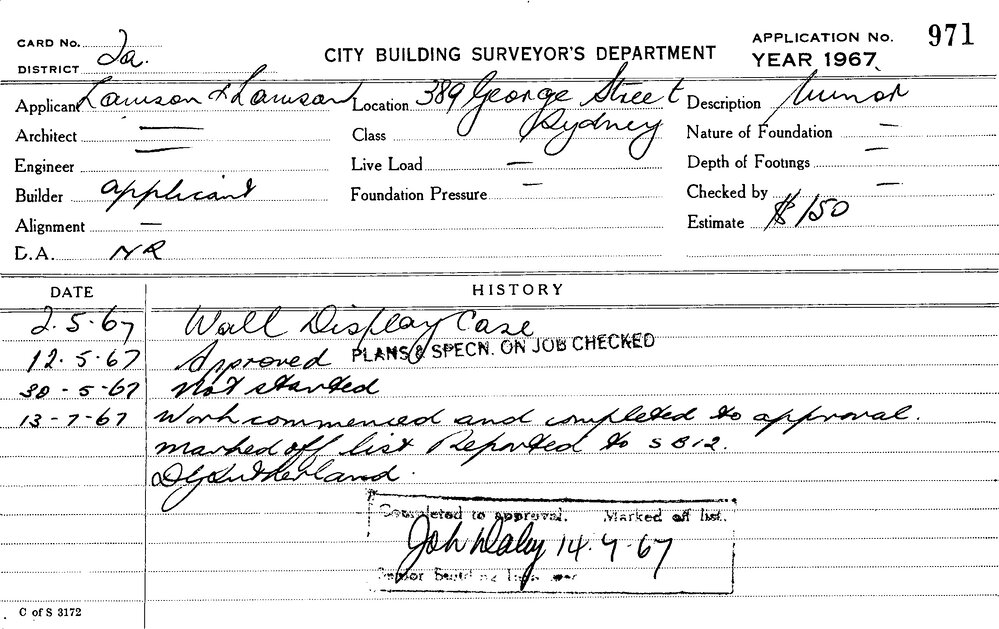 CARD No. 2a.
DISTRICT
CITY BUILDING SURVEYOR'S DEPARTMENT
APPLICATION No. 971
YEAR 1967
Applicant Lamson & Lamson Location 389 George Street Description Minor
Sydney
Architect — Class Nature of Foundation —
Engineer — Live Load — Depth of Footings —
Builder applicant Foundation Pressure — Checked by —
Alignment — Estimate $150
D.A. NR
DATE HISTORY
2.5.67 Wall Display Case
12.5.67 Approved PLANS & SPECN. ON JOB CHECKED
30-5-67 Not started
13-7-67 Work commenced and completed to approval.
marked off list Reported to SB12.
Sutherland.
Completed to approval. Marked off list.
John Daley 14.7.67
Senior Building Inspector
C of S 3172